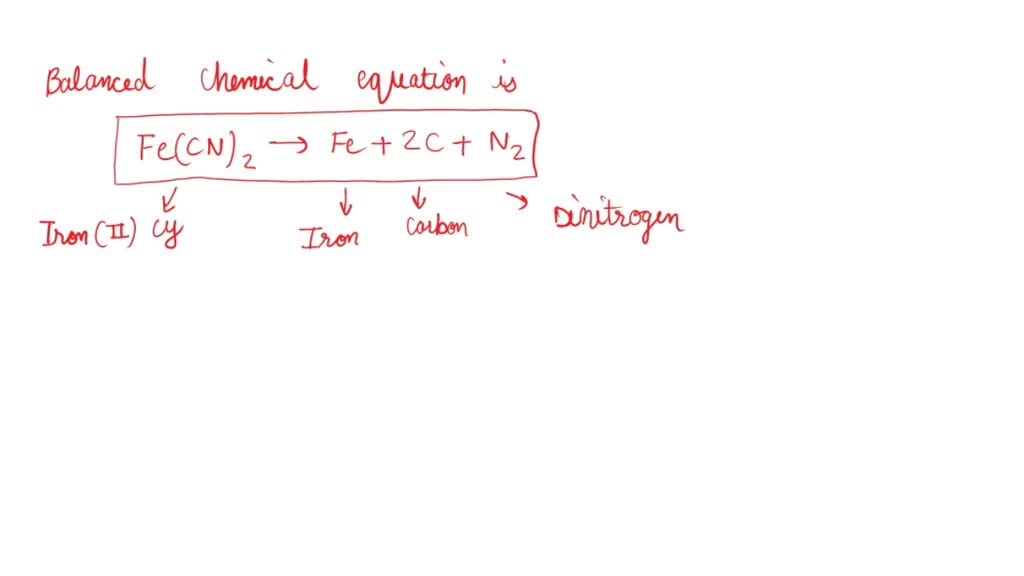 Balanced chemical equation is
Fe(CN)₂ → Fe + 2C + N₂
Iron (II) Cy Iron Carbon Dinitrogen